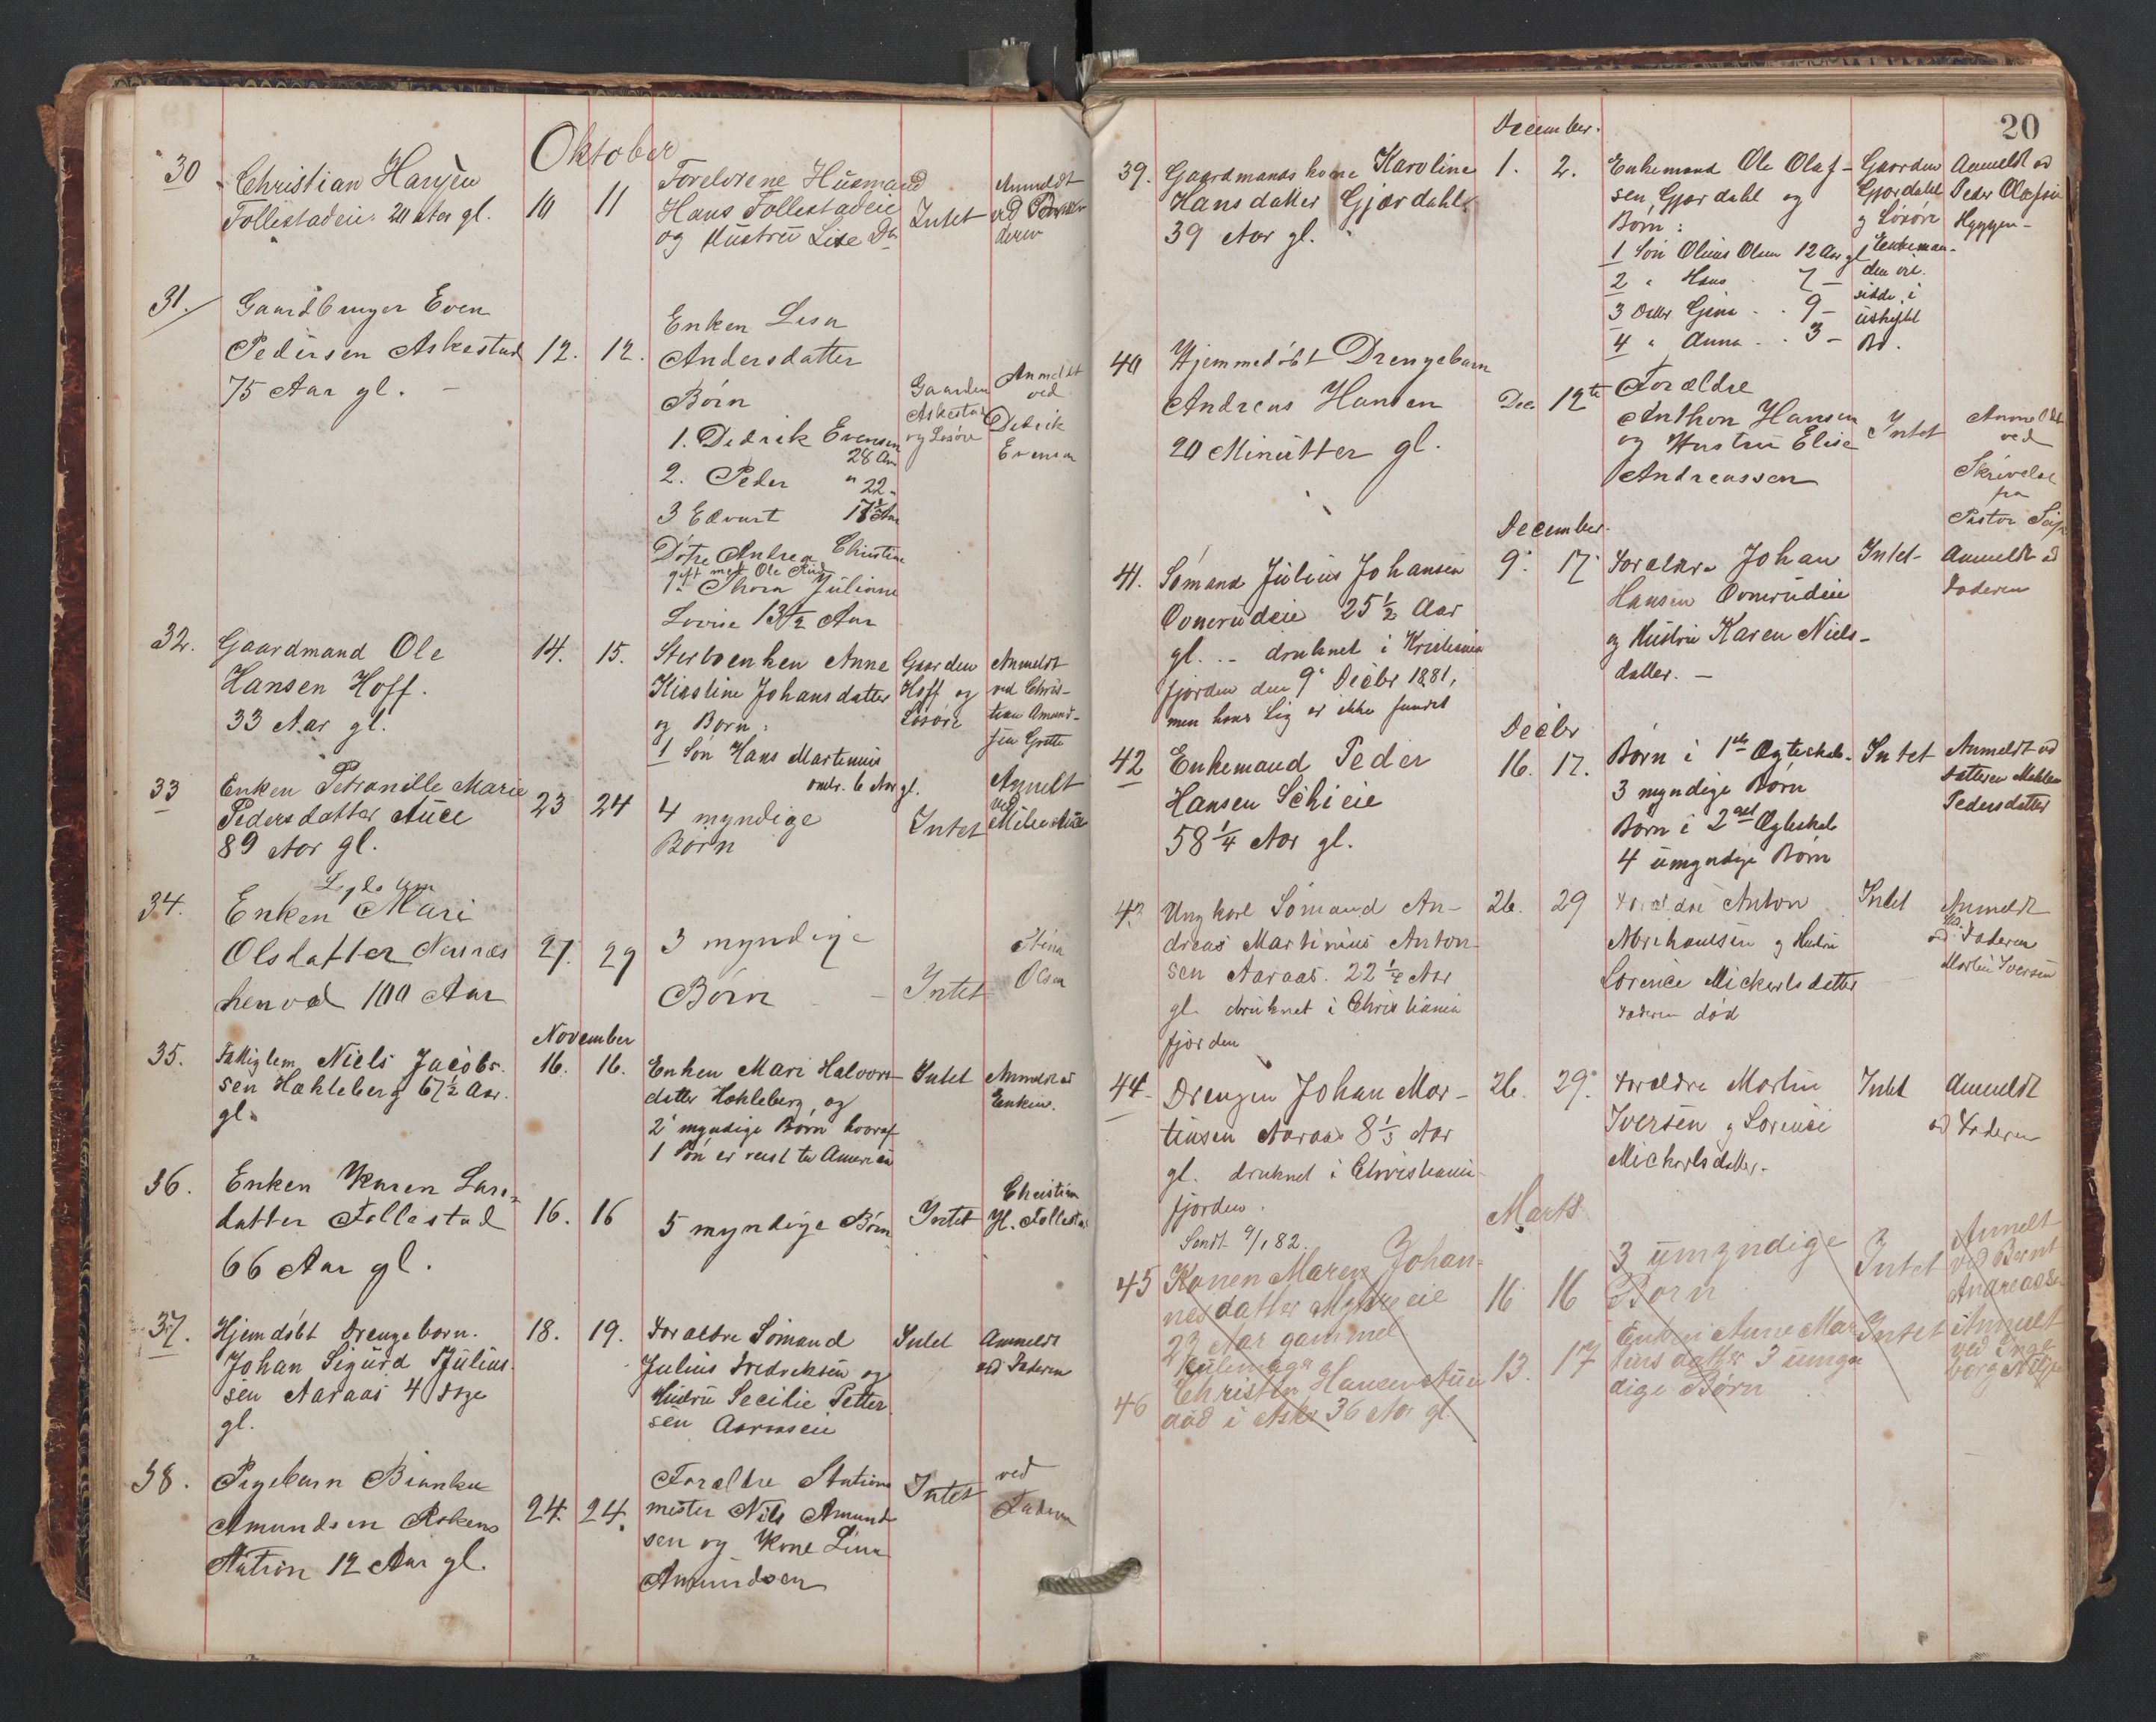 Oktober
30
Christian Hansen
Follestadeie 20 Aar gl.
10
11
Forelrene Husmand
Hans Follestadeie
og Hustru Lise
Intet
Anmeldt
ved
31.
Gaardbruger Even
Pedersen Askestad
75 Aar gl. –
12.
12.
Enken Lisa
Andersdatter
Børn
1. Didrik Evensen
28 Aar
2. Peder " 22 "
3 Edvart
Døtre Andrea Christine
gift med Ole
Thora Juliane
Lovise 13½ Aar
Gaarden
Askestad
og Løsøre
Anmeldt
ved
Didrik
Evensen
32.
Gaardmand Ole
Hansen Hoff.
33 Aar gl.
14.
15.
Sterboenken Anne
Kirstine Johansdatter
og Børn:
1 Søn Hans Martinius
omtr. 6 Aar gl.
Gaarden
Hoff og
Løsøre
Anmeldt
ved Chris-
tian Amund-
sen
33
Enken Petronille Marie
Pedersdatter Aue
89 Aar gl.
23
24
4 myndige
Børn
Intet
Anmelt
ved
34.
Lægdslem
Enken Mari
Olsdatter Næsnæs
henved 100 Aar
27.
29
3 myndige
Børn
Intet
Stina
Olsen
November
35.
Fattiglem Niels Jacob-
sen Hakleberg 67½ Aar.
gl.
16.
16.
Enken Mari Halvors-
datter Hakleberg, og
2 myndige Børn hvoraf
1 Søn er reist til America
Intet
Anmeldt ved
Enken.
36.
Enken Karen Lars-
datter Follestad
66 Aar gl.
16.
16
5 myndige Børn
Intet
Christian
H. Follestad
37.
Hjemdøbt Drengebarn.
Johan Sigurd Julius-
sen Aaraas 4 Dage
gl.
18.
19.
Forældre Sømand
Julius Fredriksen og
Hustru Secilie Petter
sen Aaraaseie
Intet
Anmeldt
ved Faderen
38.
Pigebarn Bianka
Amundsen Røkens
Station 12 Aar gl.
24.
24.
Forældre Stations
mester Nils Amund
sen og Kone Lina
Amundsen
Intet
ved
Faderen
20
December.
39.
Gaardmandskone Karoline
Hansdatter Gjærdahl
39 Aar gl.
1.
2.
Enkemand Ole Olaf-
sen, Gjærdahl og
Børn:
1 Søn Olaus Olsen 12 Aar gl
2 " Hans 7 –
3 Datter Gina . . 9 –
4 " Anna . . 3 –
Gaarden
Gjærdahl
og Løsøre
Enkeman-
den vil
sidde i
uskiftet
Bo.
Anmeldt ved
Peder Olafsen
Hyggen –
40
Hjemmedøbt Drengebarn
Andreas Hansen
20 Minutter gl.
Dec.
12te
Forældre
Anthon Hansen
og Hustru Elise
Andreassen
Intet
Anmeldt
ved
Skrivelse
fra
Pastor
December.
41.
Sømand Julius Johansen
Ovnerudeie 25½ Aar
gl. – druknet i Kristiania
fjorden den 9 Decbr 1881,
men hans Lig er ikke fundet
9.
17.
Forældre Johan
Hansen Ovnerudeie
og Hustru Karen Niels-
datter. –
Intet
Anmeldt ved
Faderen
Decbr
42
Enkemand Peder
Hansen
58¼ Aar gl.
16.
17.
Børn i 1ste Ægteskab.
3 myndige Børn
Børn i 2det Ægteskab
4 umyndige Børn
Intet
Anmeldt ved
Datteren
Pedersdatter
43
Ungkarl Sømand An-
dreas Martinius Anton-
sen Aaraas. 22½ Aar
gl. druknet i Christiania
fjorden
26.
29
Forældre Anton
og Hustru
Lorence Mickelsdatter
Faderen død
Intet
Anmeldt
ved Faderen
Martin Iversen
44.
Drengen Johan Mar-
tinsen Aaraas 8⅓ Aar
gl. druknet i Christiania-
fjorden.
Sendt 9/1 82.
26.
29.
Forældre Martin
Iversen og Lorence
Mickelsdatter.
Intet
Anmeldt
ved Faderen
Marts
45
Konen Maren Johan-
nesdatter
23 Aar gammel
16.
16
3 umyndige
Børn
Intet
Anmelt
ved Bernt
Andreassen
46
Christen Hansen Aue
død i Asker 36 Aar gl.
13.
17
Enken Anne Mar
tins datter 3 umyn
dige Børn
Intet
Anmelt
ved Inge-
borg